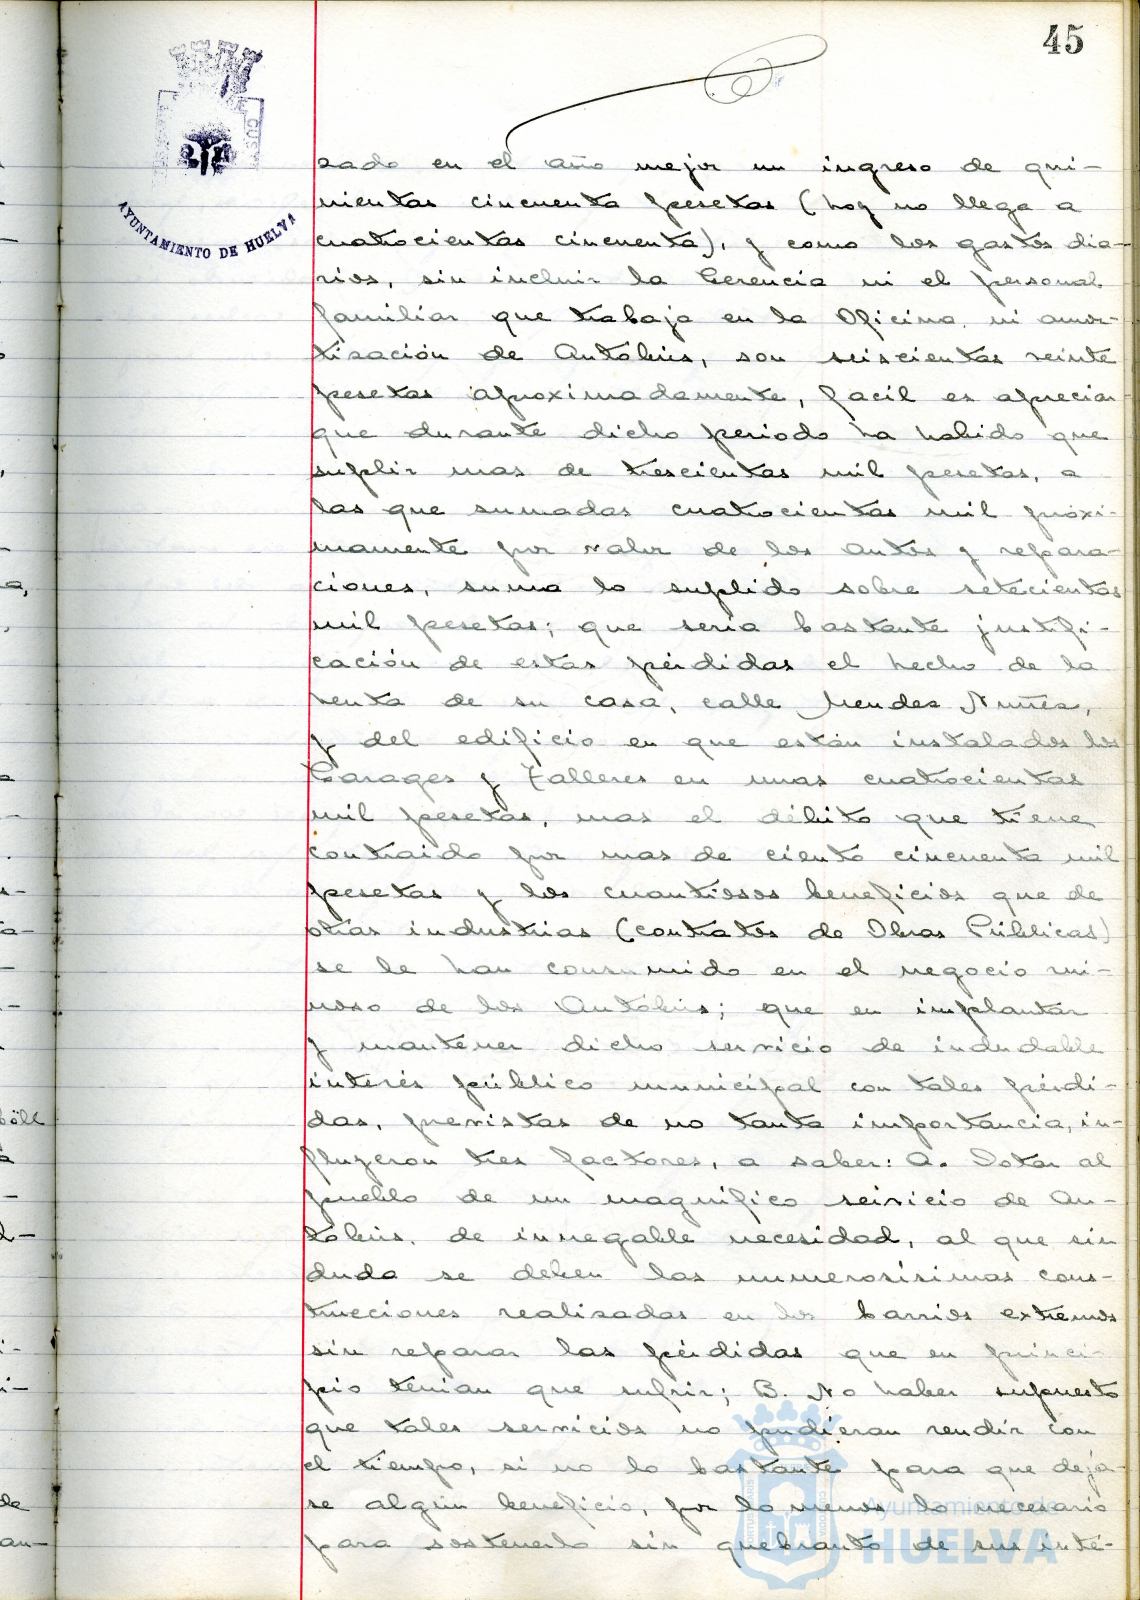 45
AYUNTAMIENTO DE HUELVA
sado en el año mejor un ingreso de qui-
nientas cincuenta pesetas (hoy no llega a
cuatrocientas cincuenta), y como los gastos dia-
rios, sin incluir la Gerencia ni el personal
familiar que trabaja en la Oficina ni amor-
tización de Autobús, son seiscientas veinte
pesetas aproximadamente, facil es apreciar
que durante dicho periodo ha habido que
suplir mas de trescientas mil pesetas, a
las que sumadas cuatrocientas mil próxi-
mamente por valor de los autos y repara-
ciones, suma lo suplido sobre setecientas
mil pesetas; que seria bastante justifi-
cación de estas pérdidas el hecho de la
venta de su casa, calle Mendez Nuñez,
y del edificio en que están instalados los
Garages y Talleres en unas cuatrocientas
mil pesetas, mas el débito que tiene
contraido por mas de ciento cincuenta mil
pesetas y los cuantiosos beneficios que de
otras industrias (contratos de Obras Públicas)
se le han consumido en el negocio rui-
noso de los Autobús; que en implantar
y mantener dicho servicio de indudable
interés público municipal con tales pérdi-
das, previstas de no tanta importancia, in-
fluyeron tres factores, a saber: A. Dotar al
pueblo de un magnífico servicio de Au-
tobús, de innegable necesidad, al que sin
duda se deben las numerosísimas cons-
trucciones realizadas en los barrios extremos
sin reparar las pérdidas que en princi-
pio tenian que sufrir; B. No haber supuesto
que tales servicios no pudieran rendir con
el tiempo, si no lo bastante para que deja-
se algún beneficio, por lo menos lo necesario
para sostenerlo sin quebranto de sus inte-
Ayuntamiento de
HUELVA